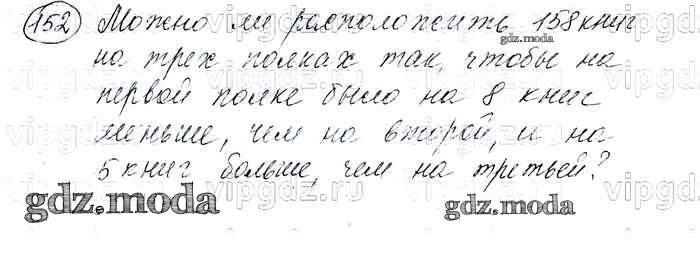 152 Можно ли расположить 158 книг
gdz.moda
на трех полках так, чтобы на
первой полке было на 8 книг
меньше, чем на второй, и на
5 книг больше, чем на третьей?
gdz.moda gdz.moda